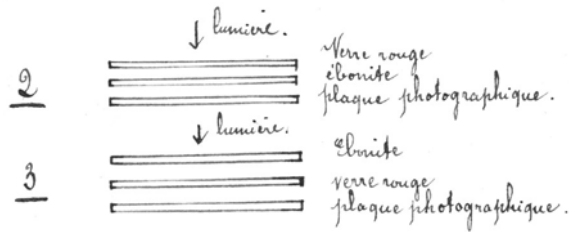 lumière.
Verre rouge
2 ébonite
plaque photographique.
lumière.
Ebonite
3 verre rouge
plaque photographique.